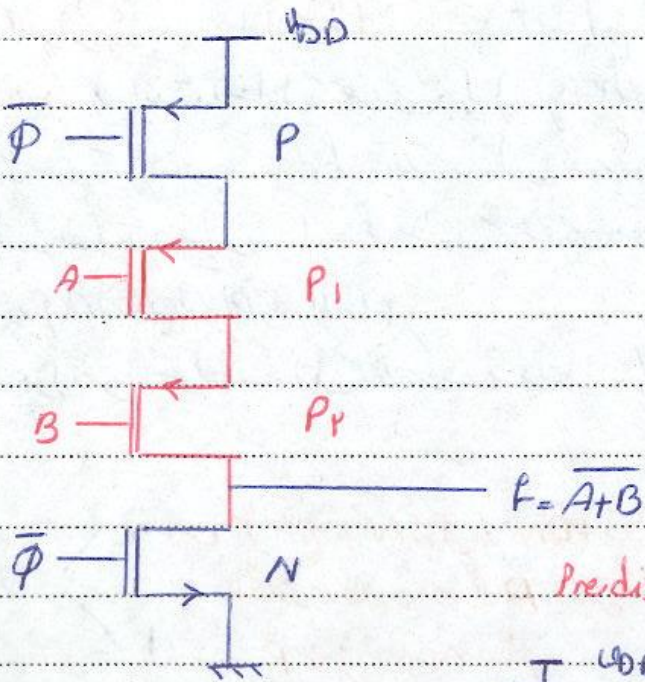 VDD
Φ̅ P
A P1
B P۲
F = \overline{A+B}
Φ̅ N
Predi
VDD